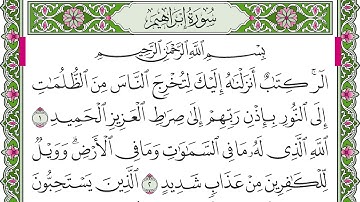 سُورَةُ إِبْرَاهِيمَ
بِسْمِ ٱللَّهِ ٱلرَّحْمَٰنِ ٱلرَّحِيمِ
الٓرۚ كِتَٰبٌ أَنزَلْنَٰهُ إِلَيْكَ لِتُخْرِجَ ٱلنَّاسَ مِنَ ٱلظُّلُمَٰتِ
إِلَى ٱلنُّورِ بِإِذْنِ رَبِّهِمْ إِلَىٰ صِرَٰطِ ٱلْعَزِيزِ ٱلْحَمِيدِ ١
ٱللَّهِ ٱلَّذِى لَهُۥ مَا فِى ٱلسَّمَٰوَٰتِ وَمَا فِى ٱلْأَرْضِۗ وَوَيْلٌ
لِّلْكَٰفِرِينَ مِنْ عَذَابٍ شَدِيدٍ ٢ ٱلَّذِينَ يَسْتَحِبُّونَ